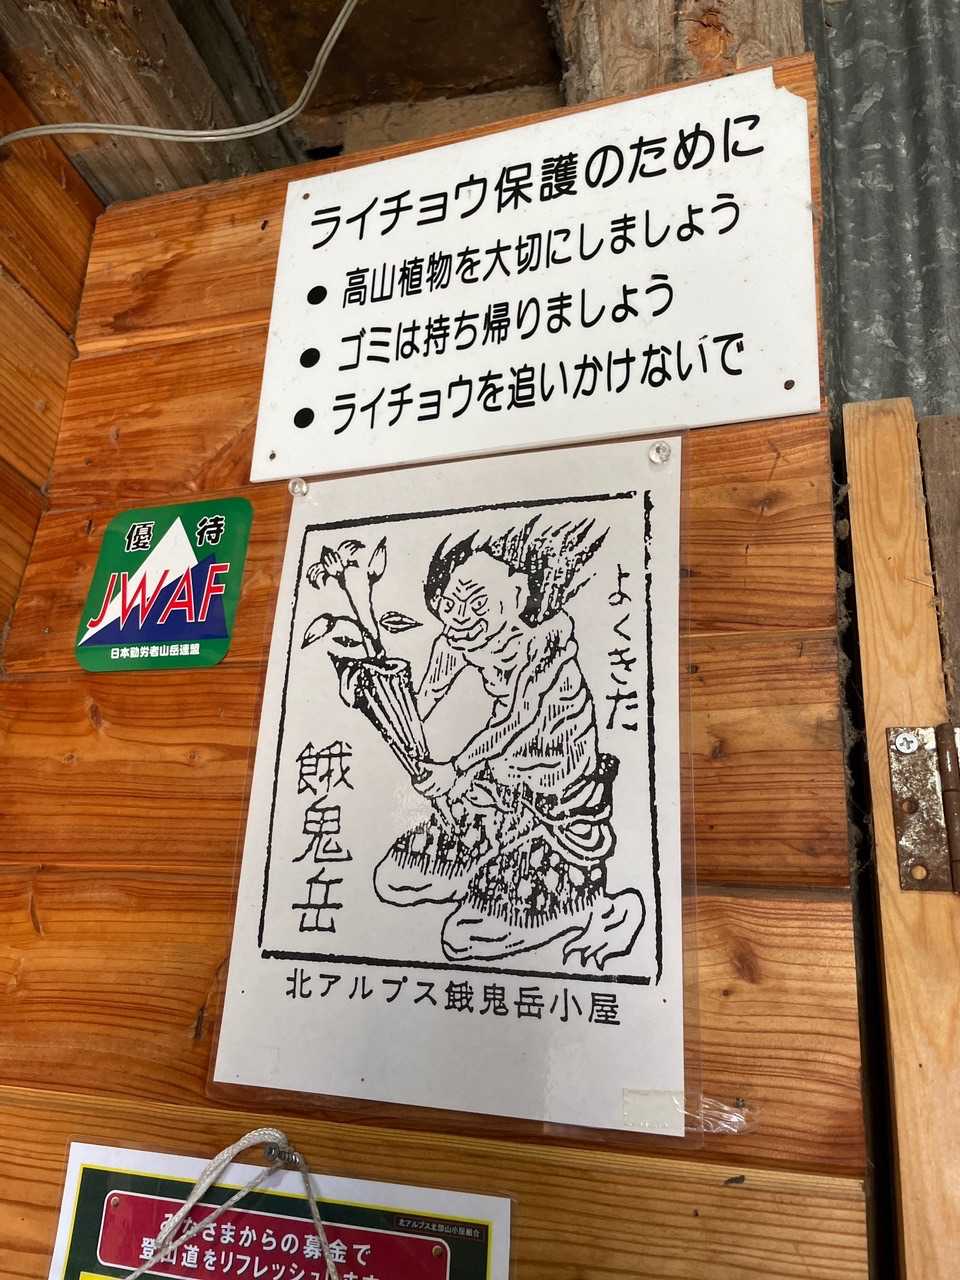 ライチョウ保護のために
● 高山植物を大切にしましょう
● ゴミは持ち帰りましょう
● ライチョウを追いかけないで
優待
JWAF
日本勤労者山岳連盟
よくきた
餓鬼岳
北アルプス餓鬼岳小屋
北アルプス北部山小屋組合
みなさまからの募金で
登山道をリフレッシュします